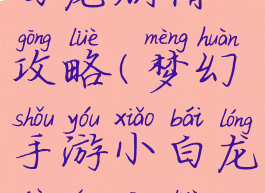 gōng lüè mèng huàn
攻略(梦幻
shǒu yóu xiǎo bái lóng
手游小白龙